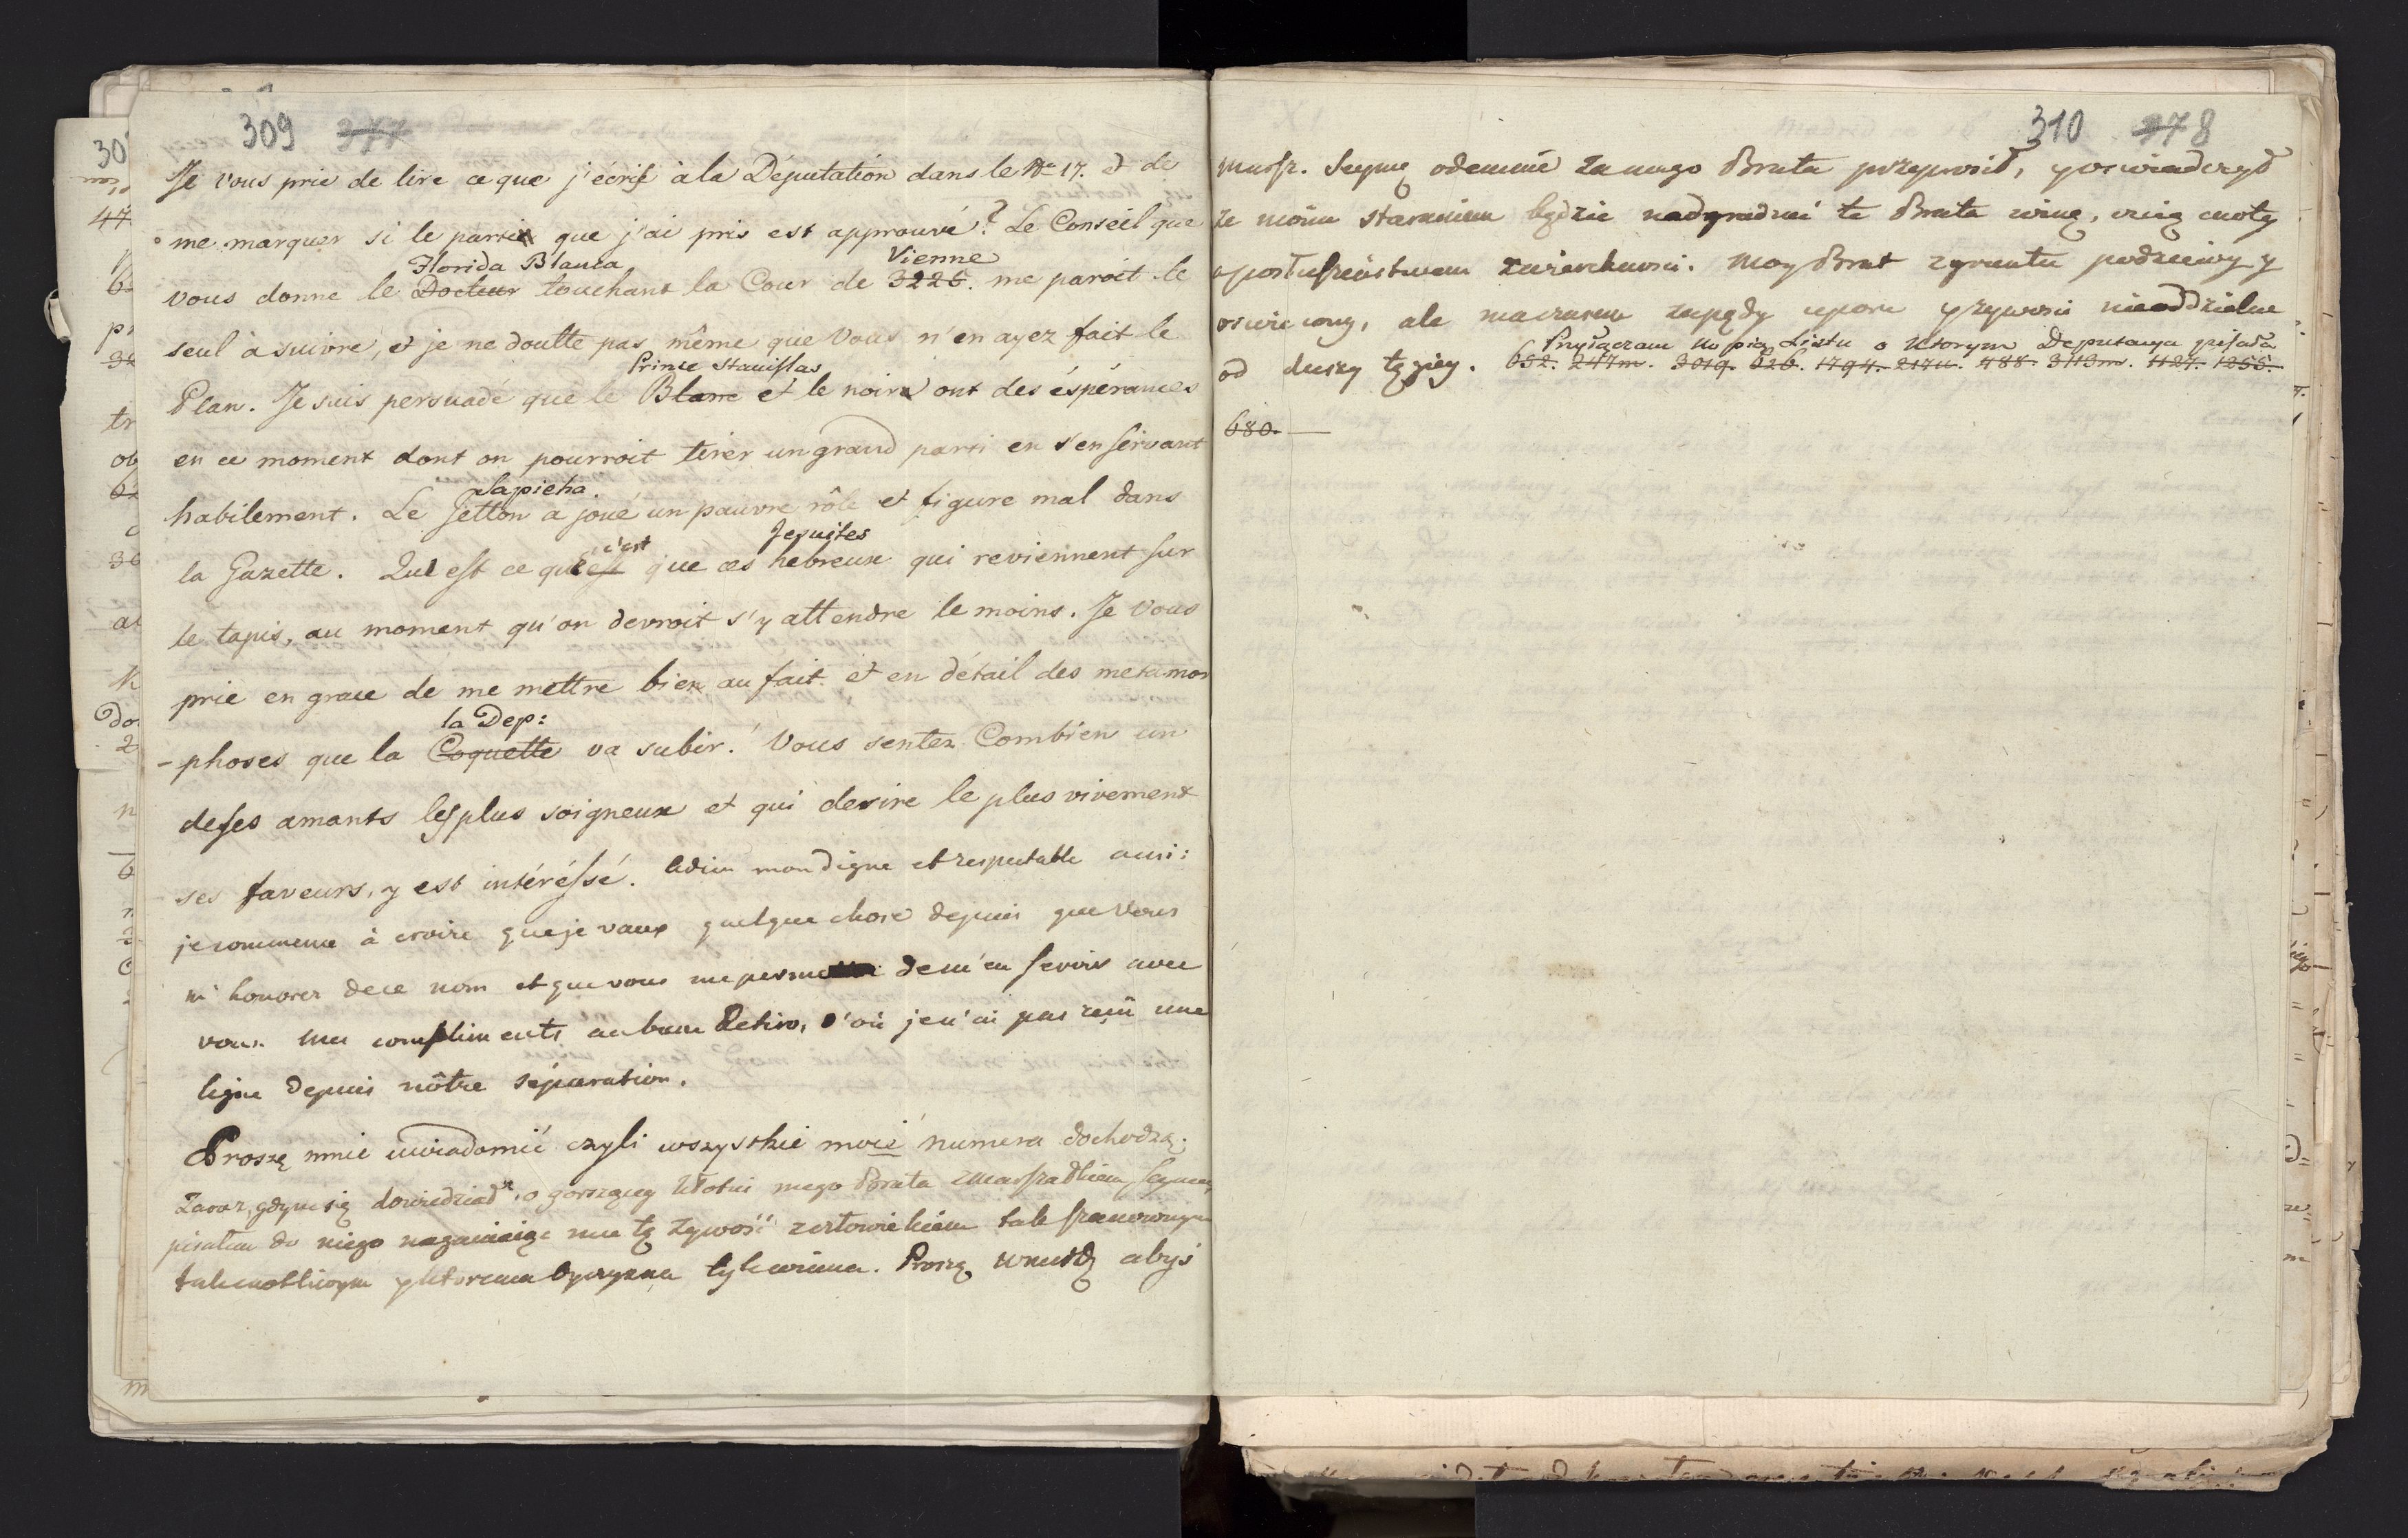 309 377
Je vous prie de lire ce que j'écris à la Députation dans le Nro 17. et de
me marquer si le parti que j'ai pris est approuvé? Le Conseil que
Florida Blanca Vienne
vous donne le Docteur touchant la Cour de 3226. me paroit le
seul à suivre, et je ne doutte pas même que Vous n'en ayez fait le
Prince Stanislas
Plan. Je suis persuadé que le Blanc et le noir ont des éspérances
en ce moment dont on pourroit tirer un grand parti en s'en servant
Sapieha.
habilement. Le Jetton a joué un pauvre rôle et figure mal dans
c'est Jesuites
la Gazette. Qu'est ce que c'est que ces hebreux qui reviennent sur
le tapis, au moment qu'on devroit s'y attendre le moins. Je Vous
prie en grace de me mettre bien au fait et en détail des metamor
la Dep:
-phoses que la Coquette va subir! Vous sentez Combien un
de ses amants les plus soigneux et qui desire le plus vivement
ses faveurs, y est intéréssé. Adieu mon digne et respectable ami:
je commence à croire que je vaux quelque chose depuis que Vous
m'honorer de ce nom et que vous me de m'en servir avec
vous. Mes compliments au bon Retiro, d'où je n'ai pas reçû une
ligne depuis nôtre séparation.
Proszę mnie uwiadomić czyli wszystkie moie numera dochodzą.
Zaraz, gdym się dowiedział o gorszącey kłotni mego Brata z Marszałkiem Seymu,
pisałem do niego naganiaiąc mu tę żywość z człowiekiem tak szanownym
tak cnotliwym y ktoremu tyle winna. Proszę abyś
310 378
Marsz. Seymu odemnie za mego Brata przeprosił, y oswiadczył
że moim staraniem będzie nadgradzać te Brata winę, czcią cnoty
y posłuszeństwem zwierzchności. Moy Brat z gruntu poczciwy y
oswiecony, ale ma czasem zapędy uporu y żywości nieoddzielne
Przyłączam kopią Listu o ktorym Deputacya pisała
od duszy tęgiey. 652. 247m. 3019. 626. 1794. 217u. 488. 3113m. 1127. 1255.
680.